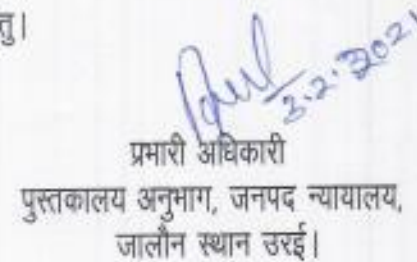 तु।
3.2.2021
प्रभारी अधिकारी
पुस्तकालय अनुभाग, जनपद न्यायालय,
जालौन स्थान उरई।